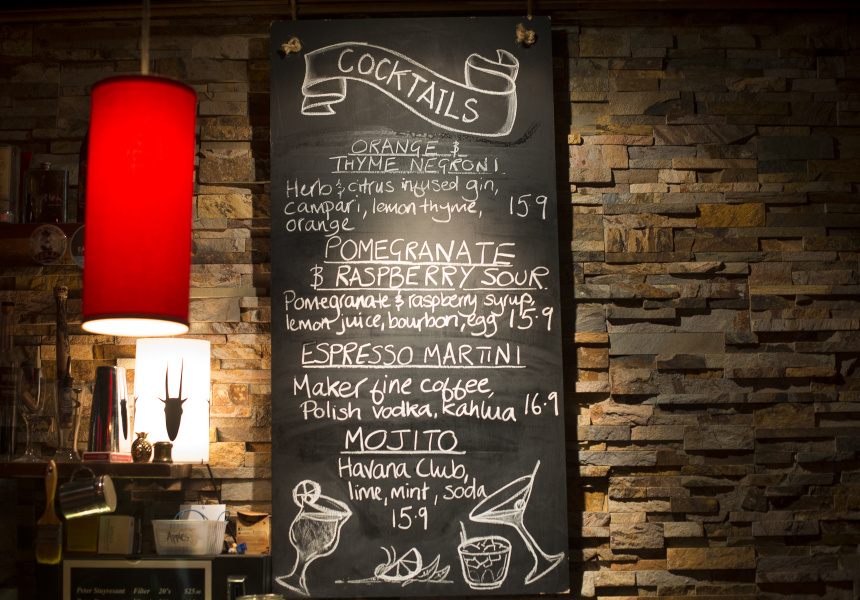 COCKTAILS
ORANGE &
THYME NEGRONI
Herb & citrus infused gin,
campari, lemon thyme, 15 9
orange
POMEGRANATE
& RASPBERRY SOUR
Pomegranate & raspberry syrup,
lemon juice, bourbon, egg 15.9
ESPRESSO MARTINI
Maker fine coffee,
Polish vodka, kahlua 16.9
MOJITO
Havana Club,
lime, mint, soda
15.9
Apples
Peter Stuyvesant Filter 20's